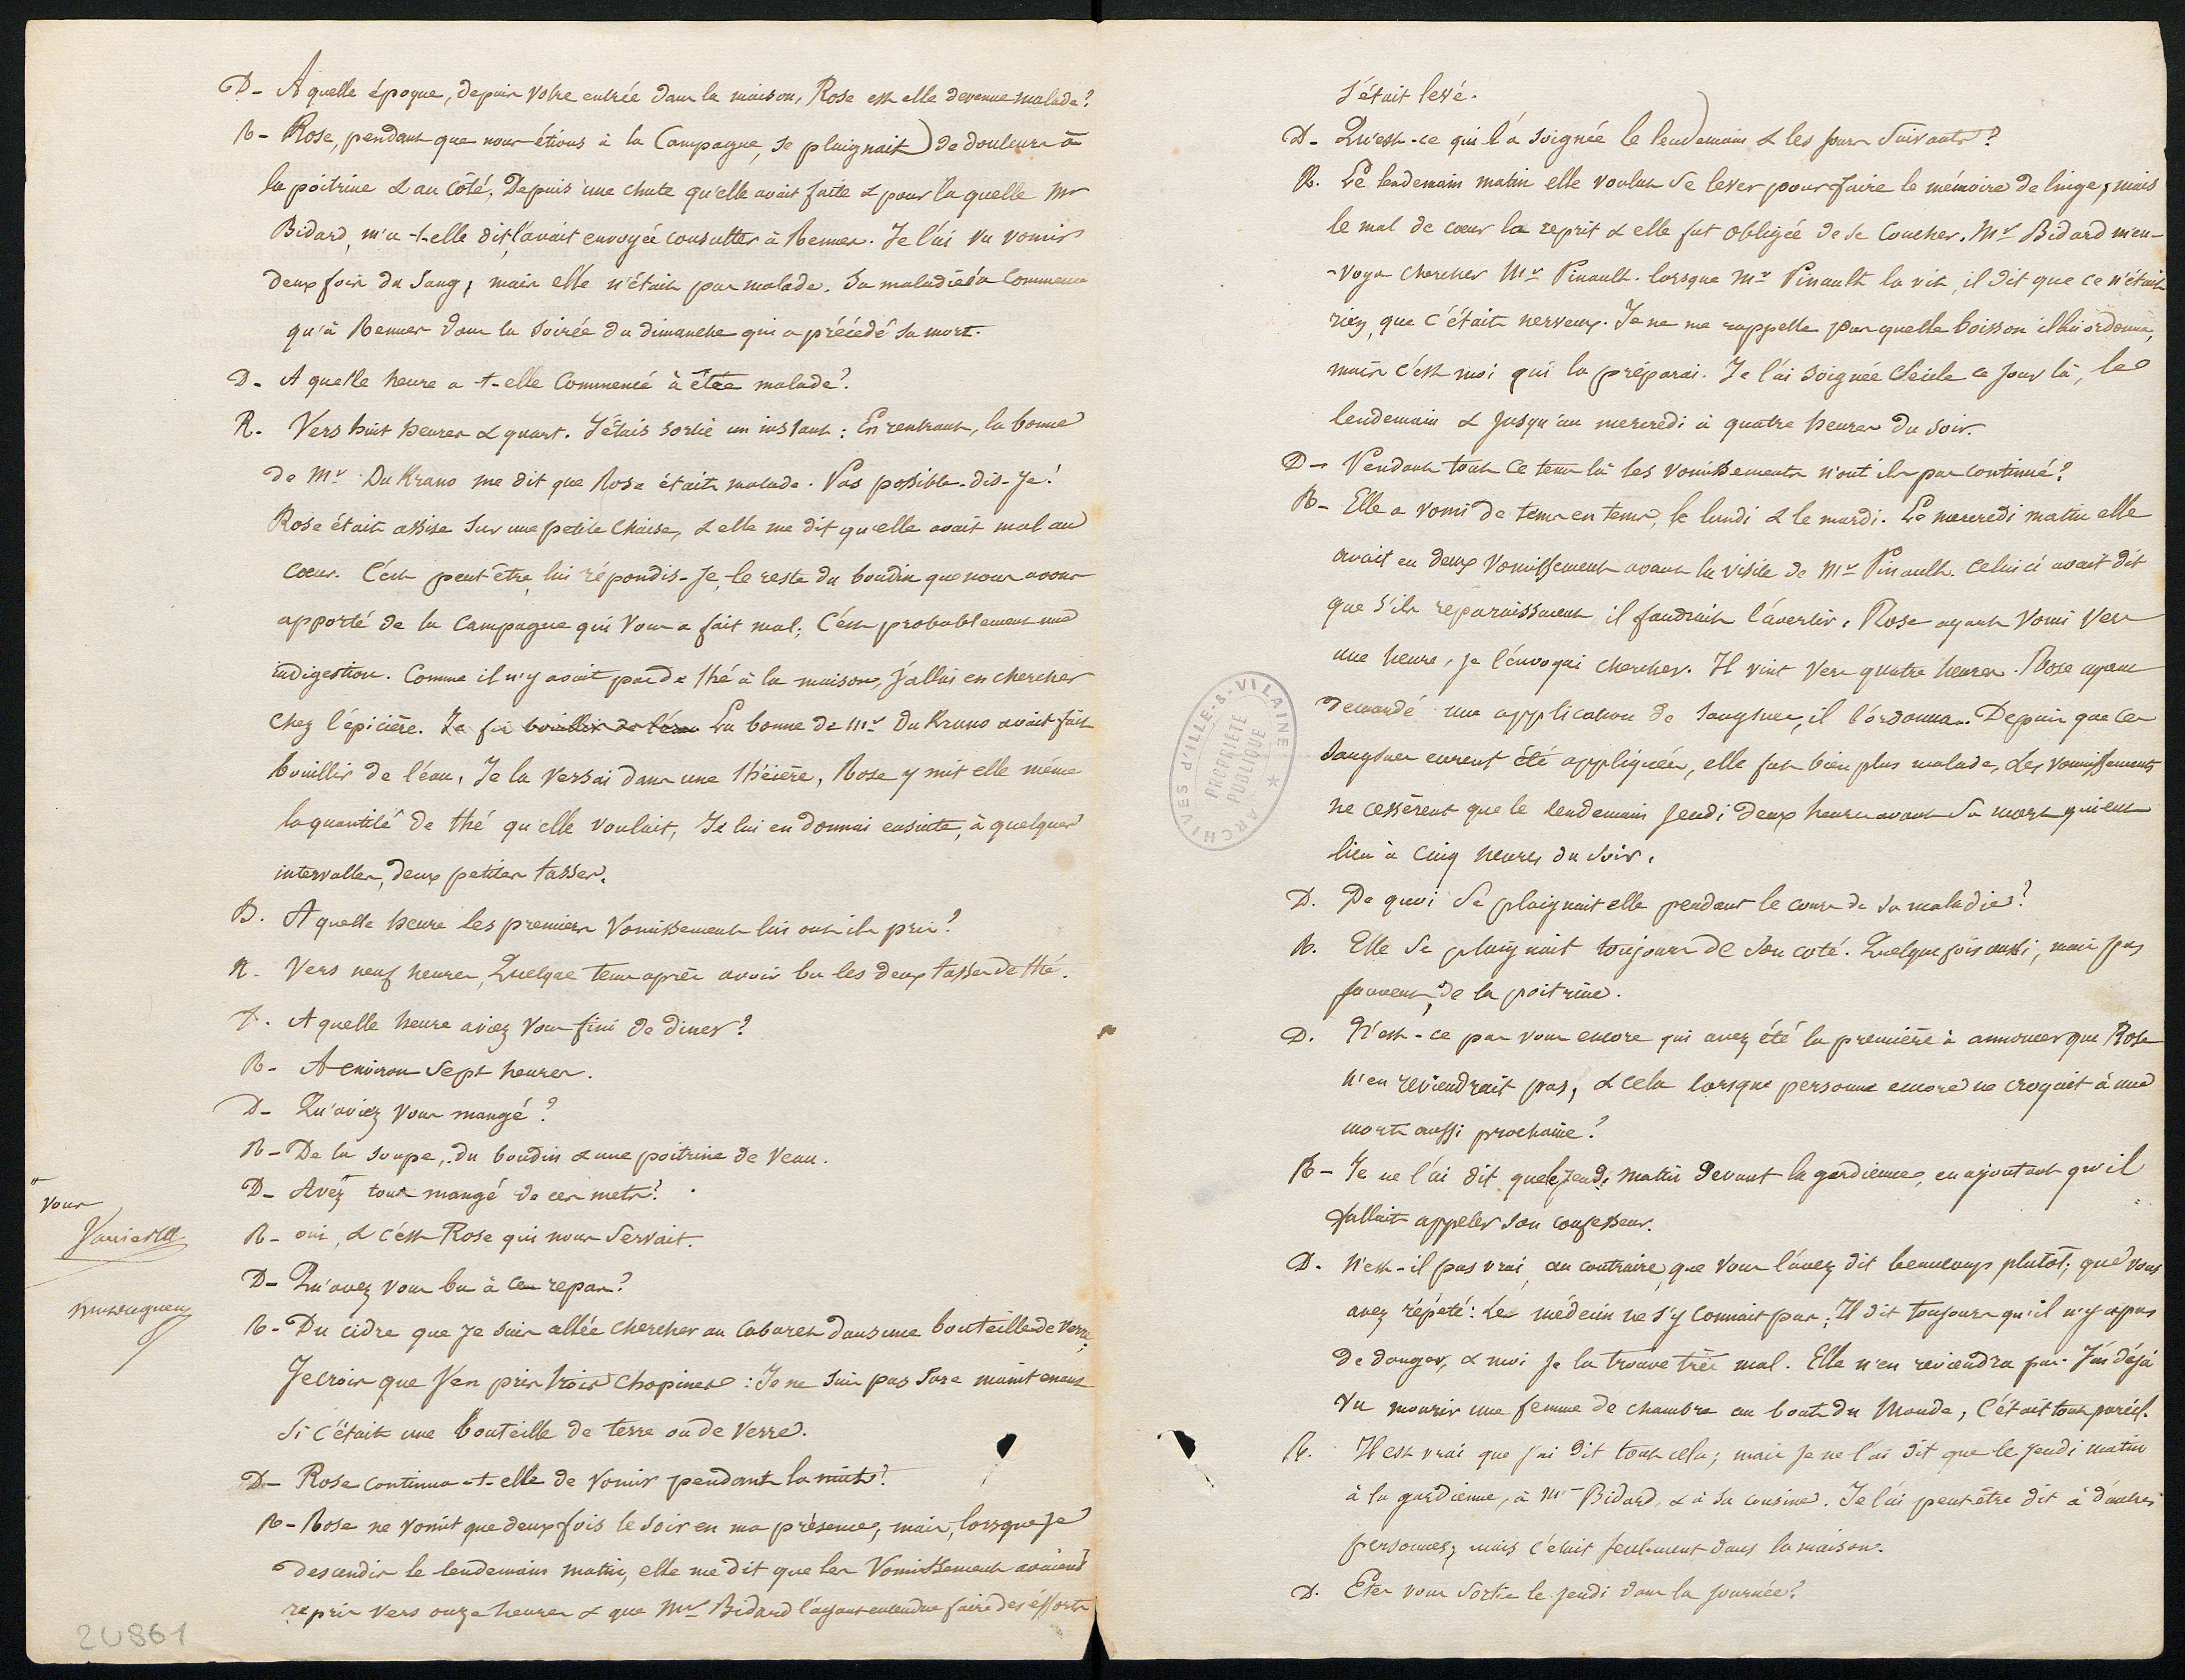 D- A quelle époque, depuis votre entrée dans la maison, Rose est elle devenue malade?
R- Rose, pendant que nous étions à la Campagne, se plaignait de douleurs à
la poitrine & au côté, Depuis une chute qu'elle avait faite & pour laquelle Mr
Bidard, m'a-t-elle dit, l'avait envoyée consulter à Rennes. Je l'ai vu vomir
deux fois du sang, mais elle n'était pas malade. Sa maladie n'a commencé
qu'à Rennes dans la soirée du dimanche qui a précédé sa mort.
D- A quelle heure a-t-elle Commencé à être malade?
R. Vers huit heures & quart. J'étais sortie un instant: En rentrant, la bonne
de Mr Du Krano me dit que Rose était malade. Pas possible-dis-je!
Rose était assise sur une petite chaise, & elle me dit qu'elle avait mal au
coeur. C'est peut être, lui répondis-je, le reste du boudin que nous avons
apporté de la campagne qui vous a fait mal; C'est probablement une
indigestion. Comme il n'y avait pas de thé à la maison, j'allai en chercher
chez l'épicière. Je fis bouillir de l'eau La bonne de Mr Du Krano avait fait
bouillir de l'eau, Je la versai dans une théière, Rose y mit elle même
la quantité de thé qu'elle voulait, Je lui en donnai ensuite, à quelques
intervalles, deux petites tasses.
D. A quelle heure les premiers vomissements lui ont ils pris?
R. Vers neuf heures, Quelque tems après avoir bu les deux tasses de thé.
D. A quelle heure aviez vous fini de diner?
R- A environ sept heures.
D- Qu'aviez vous mangé?
R- De la soupe, du boudin & une poitrine de veau.
D- Avez tous mangé de ces mets?
vous
R- oui, & c'est Rose qui nous servait.
D- Qu'avez vous bu à ce repas?
R- Du cidre que je suis allée chercher au cabaret dans une bouteille de verre;
Je crois que j'en pris trois chopines: Je ne suis pas sure maintenant
si c'était une bouteille de terre ou de verre.
D- Rose continua-t-elle de vomir pendant la nuit?
R- Rose ne vomit que deux fois le soir en ma présence, mais, lorsque je
descendis le lendemain matin, elle me dit que les vomissements avaient
repris vers onze heures & que Mr Bidard l'ayant entendue faire des efforts
2U861
s'était levé.
D- Qu'est-ce qui l'a soignée le lendemain & les jours suivants?
R. Le lendemain matin elle voulut se lever pour faire le mémoire de linge, mais
le mal de coeur la reprit & elle fut obligée de se coucher. Mr Bidard m'en-
-voya chercher Mr Pinault. lorsque Mr Pinault la vit, il dit que ce n'était
rien, que c'était nerveux. Je ne me rappelle pas quelle boisson il lui ordonna,
mais c'est moi qui la préparai. Je l'ai soignée seule ce jour là, le
lendemain & jusqu'au mercredi à quatre heures du soir.
D- Pendant tout ce tems là les vomissements n'ont ils pas continué?
R- Elle a vomi de tems en tems, le lundi & le mardi. Le mercredi matin elle
avait eu deux vomissements avant la visite de Mr Pinault. Celui ci avait dit
que s'ils reparaissaient il faudrait l'avertir, Rose ayant vomi vers
une heure, je l'envoyai chercher. Il vint vers quatre heures. Rose ayant
demandé une application de sangsues, il l'ordonna. Depuis que ces
sangsues eurent été appliquées, elle fut bien plus malade, Les vomissements
ne cessèrent que le lendemain jeudi deux heures avant sa mort qui eut
lieu à cinq heures du soir.
D. De quoi se plaignait elle pendant le cours de sa maladie?
R. Elle se plaignait toujours de son coté. Quelquefois aussi, mais pas
souvent, de la poitrine.
D. N'est-ce pas vous encore qui avez été la première à annoncer que Rose
n'en reviendrait pas, & cela lorsque personne encore ne croyait à une
mort aussi prochaine?
R- Je ne l'ai dit que le jeudi matin devant la gardienne, en ajoutant qu'il
fallait appeler son confesseur.
D. N'est-il pas vrai, au contraire, que vous l'avez dit beaucoup plutôt; que vous
avez répété: Le médecin ne s'y connait pas; Il dit toujours qu'il n'y a pas
de danger, & moi je la trouve très mal. Elle n'en reviendra pas. J'ai déjà
vu mourir une femme de chambre au bout du Monde, C'était tout pareil.
R. Il est vrai que j'ai dit tout cela; mais je ne l'ai dit que le jeudi matin
à la gardienne, à Mr Bidard, & à sa cousine. Je l'ai peut-être dit à d'autres
personnes; mais c'était seulement dans la maison.
D. Etes vous sortie le jeudi dans la journée?
ARCHIVES d'ILLE-&-VILAINE
PROPRIÉTÉ
PUBLIQUE